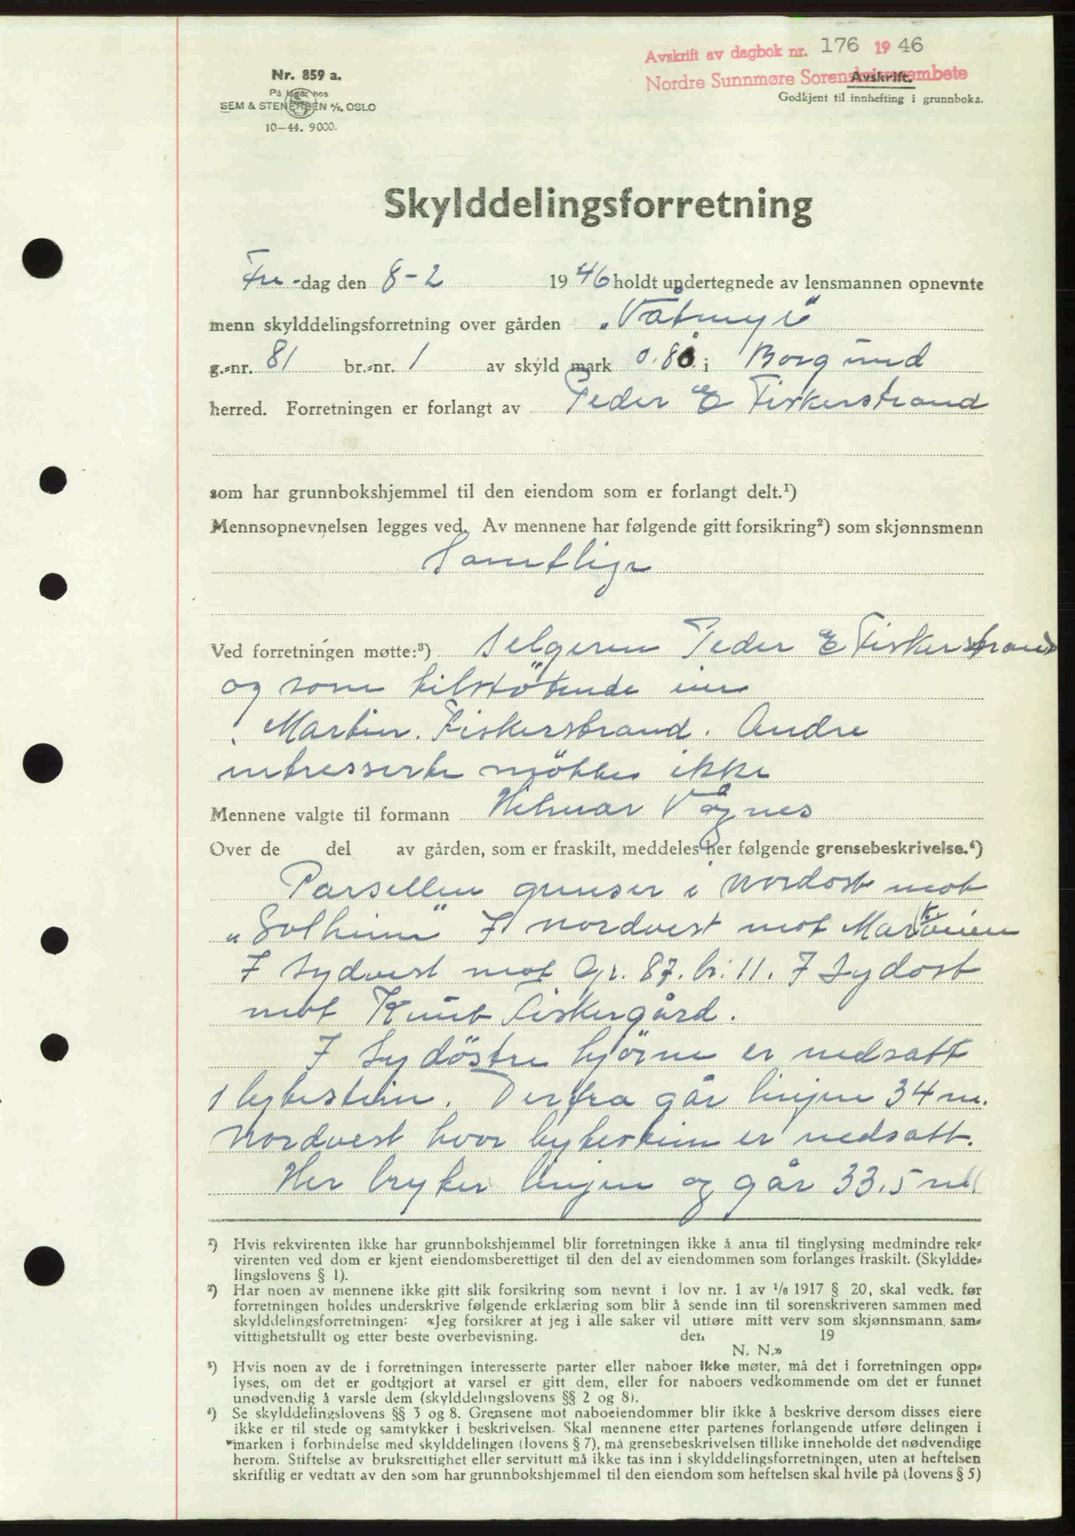 Avskrift av dagbok nr. 176 1946
Nordre Sunnmøre Sorenskriverembete
Nr. 859 a.
På lager hos
SEM & STENERSEN A/S, OSLO
10—44. 9000.
Avskrift.
Godkjent til innhefting i grunnboka.
Skylddelingsforretning
Fre-dag den 8-2 1946 holdt undertegnede av lensmannen opnevnte
menn skylddelingsforretning over gården „Våtmyr"
g.-nr. 81 br.-nr. 1 av skyld mark 0.80 i Borgund
herred. Forretningen er forlangt av Peder E Fiskerstrand
som har grunnbokshjemmel til den eiendom som er forlangt delt.¹)
Mennsopnevnelsen legges ved. Av mennene har følgende gitt forsikring²) som skjønnsmenn
Samtlige
Ved forretningen møtte:³) Selgeren Peder E Fiskerstrand
og som tilstötende
Martin. Fiskerstrand. Andre
intresserte möttes ikke
Mennene valgte til formann Hilmar Vågnes
Over de del av gården, som er fraskilt, meddeles her følgende grensebeskrivelse.⁴)
Parsellen grenser i Nordost mot
„Solheim" I nordvest mot
I Sydvest mot Gr. 87. br. 11. I Sydost
mot Knut Fiskergård.
I Sydöstre hjörne er nedsatt
1 bytestein. Derfra går linjen 34 m.
Nordvest hvor bytestein er nedsatt.
Her bryter linjen og går 33.5 m
²) Hvis rekvirenten ikke har grunnbokshjemmel blir forretningen ikke å anta til tinglysing medmindre rek-
virenten ved dom er kjent eiendomsberettiget til den del av eiendommen som forlanges fraskilt. (Skyldde-
lingslovens § 1).
²) Har noen av mennene ikke gitt slik forsikring som nevnt i lov nr. 1 av ¹/₈ 1917 § 20, skal vedk. før
forretningen holdes underskrive følgende erklæring som blir å sende inn til sorenskriveren sammen med
skylddelingsforretningen: «Jeg forsikrer at jeg i alle saker vil utføre mitt verv som skjønnsmann sam-
vittighetsfullt og etter beste overbevisning. den 19
N. N.»
³) Hvis noen av de i forretningen interesserte parter eller naboer ikke møter, må det i forretningen opp-
lyses, om det er godtgjort at varsel er gitt dem, eller for naboers vedkommende om det er funnet
unødvendig å varsle dem (skylddelingslovens §§ 2 og 8).
⁴) Se skylddelingslovens §§ 3 og 8. Grensene mot naboeiendommer blir ikke å beskrive dersom disses eiere
ikke er til stede og samtykker i beskrivelsen. Skal mennene etter partenes forlangende utføre delingen i
marken i forbindelse med skylddelingen (lovens § 7), må grensebeskrivelsen tillike inneholde det nødvendige
herom. Stiftelse av bruksrettighet eller servitutt må ikke tas inn i skylddelingsforretningen, uten at heftelsen
skriftlig er vedtatt av den som har grunnbokshjemmel til den eiendom som heftelsen skal hvile på (lovens § 5)